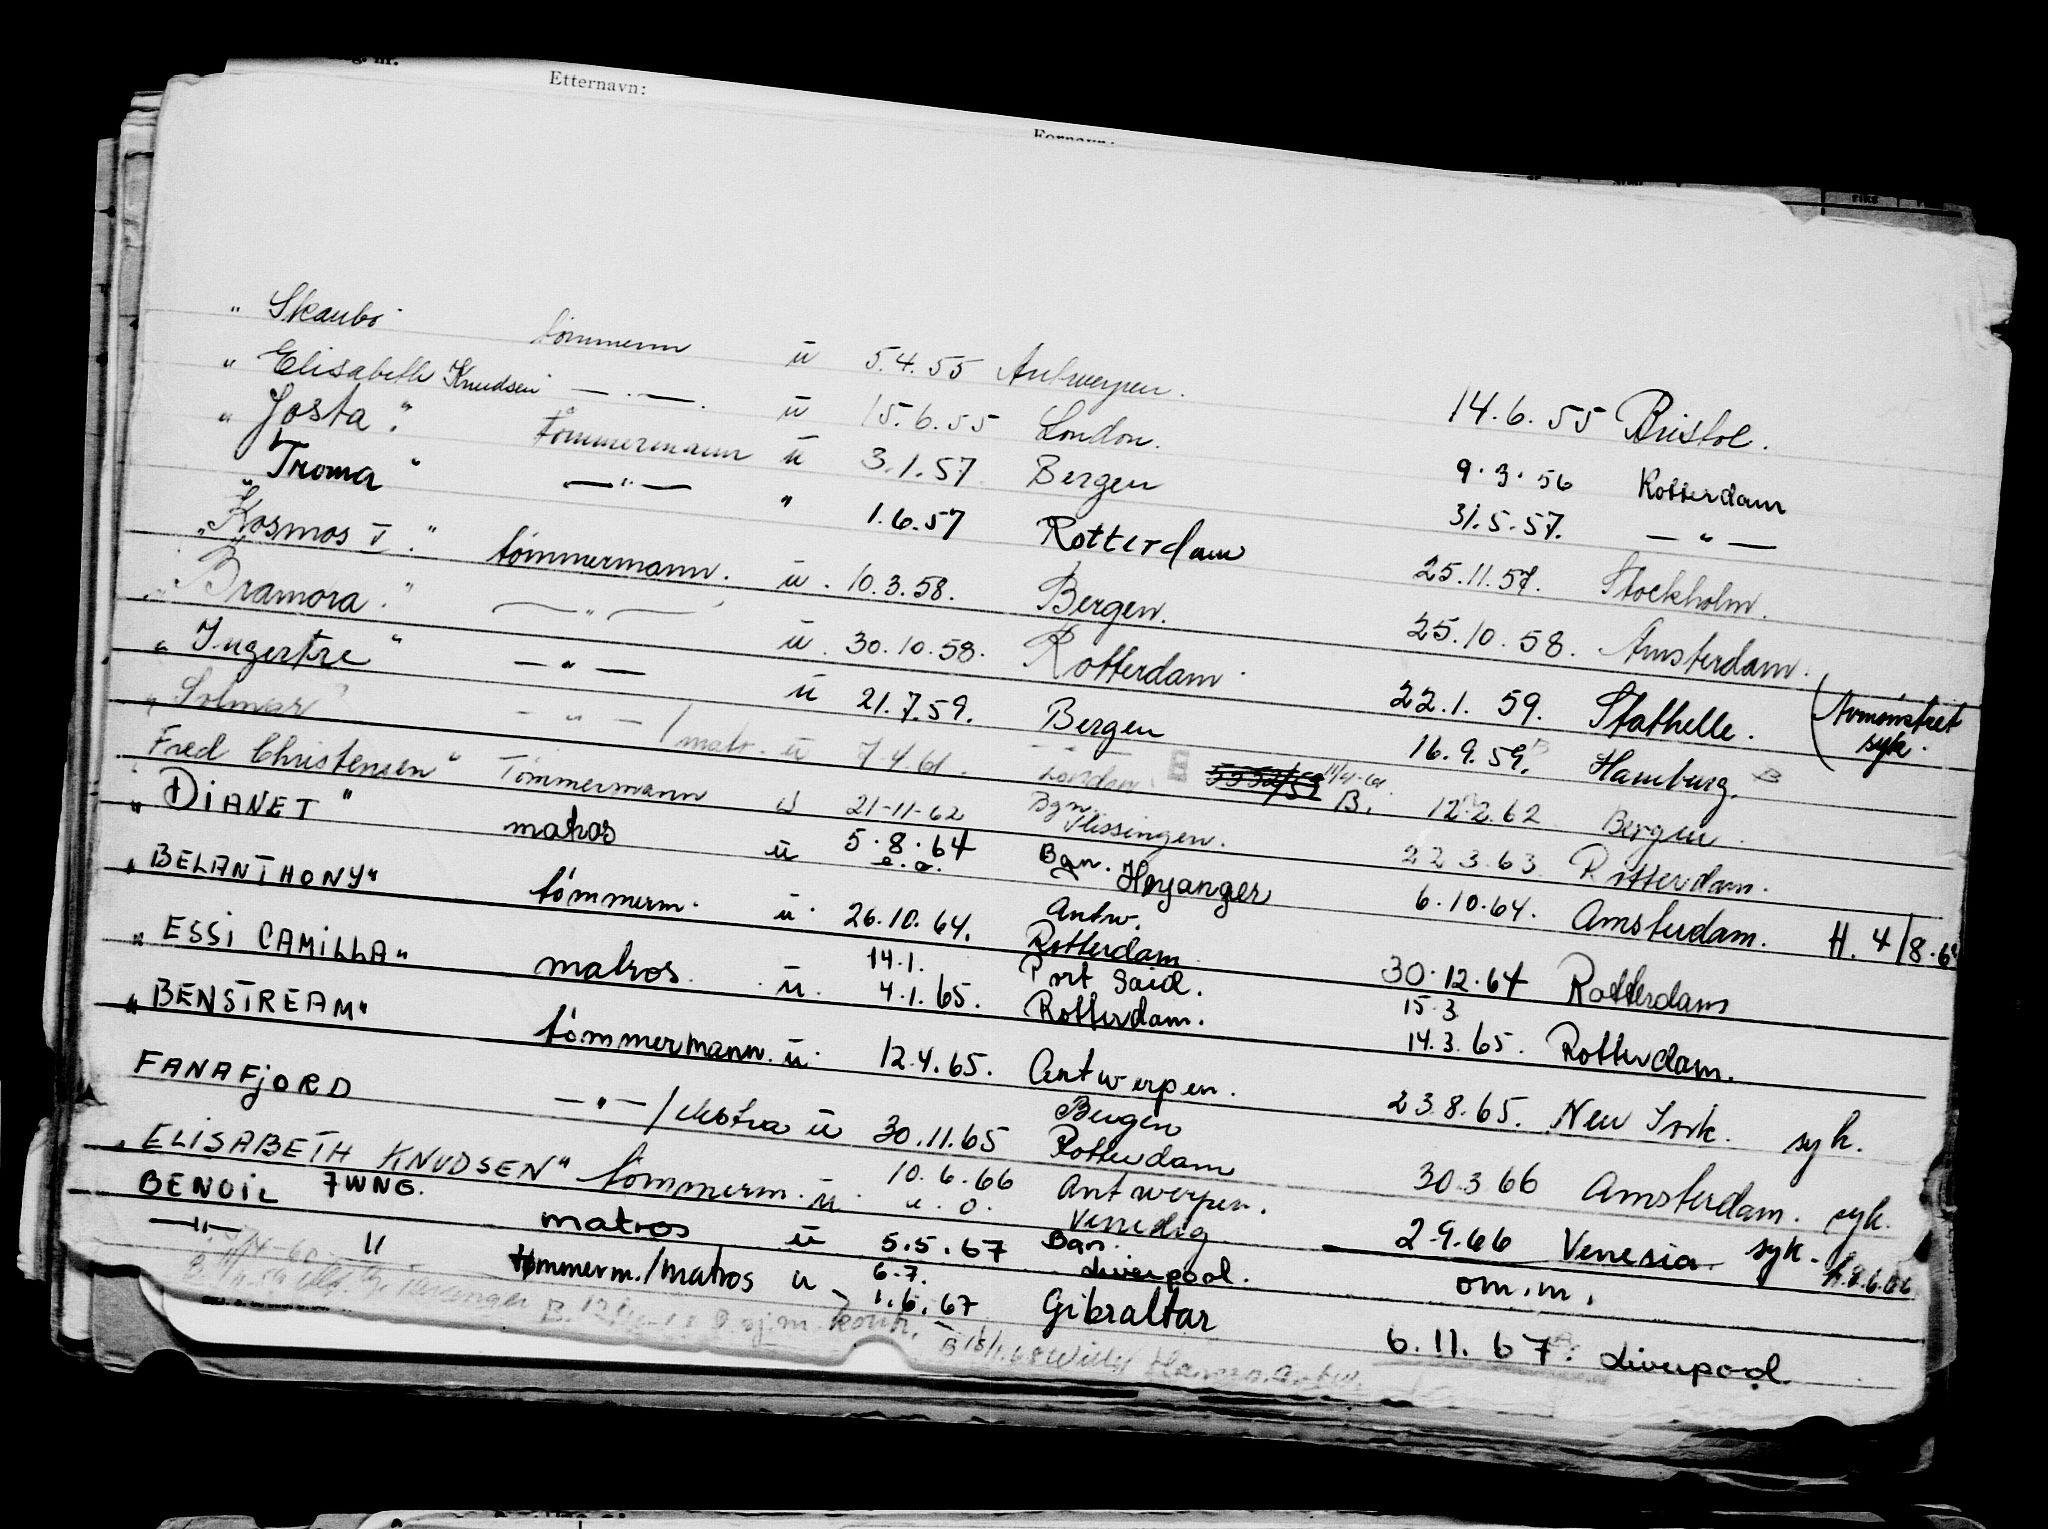 Etternavn:
Fornavn:
" Skaubo tømmerm u 5.4.55 Antwerpen. 14.6.55 Bristol.
" Elisabeth Knudsen — . — . u 15.6.55 London. 9.3.56 Rotterdam
" Josta " tømmermann u 3.1.57 Bergen 31.5.57. — " —
" Troma " — " — " 1.6.57 Rotterdam 25.11.57. Stockholm.
" Kosmos V." tømmermann. u. 10.3.58. Bergen. 25.10.58. Amsterdam.
" Bramora." — " — u. 30.10.58. Rotterdam. 22.1.59. Stathelle. (Avmønstret syk.
" Ingertre " — " — u 21.7.59. Bergen 16.9.59. Hamburg.
" Solmar — " — / matr. u 7.4.61. London. 11/4-61. B. 12.2.62 Bergen.
Fred Christensen " Tømmermann u 21-11-62 Bgn. Vlissingen. 22.3.63 Rotterdam.
" DIANET " matros u 5.8.64 e.o. Bgn. Høyanger 6.10.64. Amsterdam. H. 4/8.64
" BELANTHONY" tømmerm. u. 26.10.64. Antw. Rotterdam 30.12.64 Rotterdam
" ESSI CAMILLA" matros. u. 14.1. 4.1.65. Port Said. Rotterdam. 15.3 14.3.65. Rotterdam.
" BENSTREAM" tømmermann. u. 12.4.65. Antwerpen. 23.8.65. New York. syk.
FANAFJORD — " — / ekstra u 30.11.65 Bergen Rotterdam 30.3.66 Amsterdam. syk.
" ELISABETH KNUDSEN" tømmerm. u. 10.6.66 e.o. Antwerpen. Venedig 2.9.66 Venesia. syk. h.8.6.66
BENOIL JWNG. matros u 5.5.67 Bgn. Liverpool. om.m.
— " — " tømmerm./matros u 6.7. 1.6.67 Gibraltar 6.11.67. Liverpool.